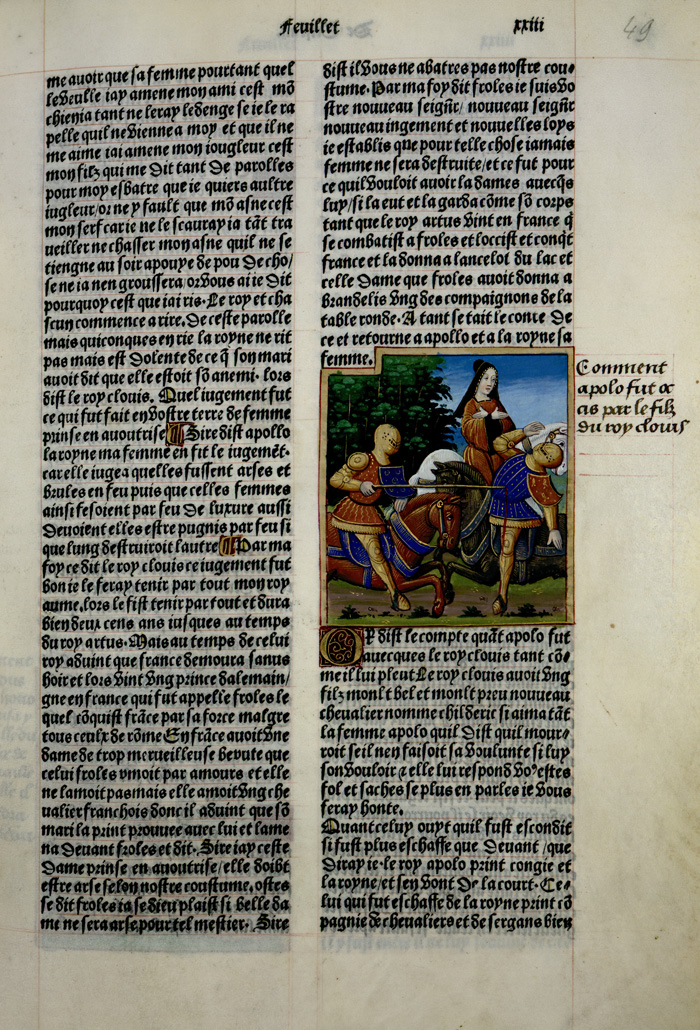 Feuillet xxiii
49
me auoir que sa femme pourtant quel
le veulle iay amene mon ami cest mō
chien ia tant ne leray ledenge se ie le ra
pelle quil ne vienne a moy et que il ne
me aime iai amene mon iougleur cest
mon filz qui me dit tant de parolles
pour moy esbatre que ie quiers aultre
iugleur/or ne y fault que mō asne cest
mon serf car ie ne le scauray ia tāt tra
ueiller ne chasser mon asne quil ne se
tiengne au soir apouye de pou de cho/
se ne ia nen groussera/or vous ai ie dit
pourquoy cest que iai ris. Le roy et cha
scun commence a rire. De ceste parolle
mais quiconques en rie la royne ne rit
pas mais est dolente de ce q̄ son mari
auoit dit que elle estoit sō anemi. lors
dist le roy clouis. Quel iugement fut
ce qui fut fait en vostre terre de femme
prinse en auoutrise Sire dist apollo
la royne ma femme en fit le iugemēt.
car elle iugea quelles fussent arses et
brules en feu puis que celles femmes
ainsi fesoient par feu de luxure aussi
deuoient elles estre pugnis par feu si
que lung destruiroit lautre Par ma
foy ce dit le roy clouis ce iugement fut
bon ie le feray tenir par tout mon roy
aume. lors le fist tenir par tout et dura
bien deux cens ans iusques au temps
du roy artus. Mais au temps de celui
roy aduint que france demoura sanus
hoir et lors vint vng prince dalemain/
gne en france qui fut appelle froles le
quel cōquist frāce par sa force malgre
tous ceulx de rōme En frāce auoit vne
dame de trop merueilleuse beoute que
celui froles vmoit par amours et elle
ne lamoit pas mais elle amoit vng che
ualier franchois donc il aduint que sō
mari la print prouuee auec lui et lame
na deuant froles et dit. Sire iay ceste
dame prinse en auoutrise/elle doibt
estre arse selon nostre coustume. ostes
se dit froles ia se dieu plaist si belle da
me ne sera arse pour tel mestier. Sire
dist il vous ne abatres pas nostre cou-
stume. Par ma foy dit froles ie suis vo
stre nouueau seignr̄/ nouueau seignr̄
nouueau iugement et nouuelles loys
ie establis que pour telle chose iamais
femme ne sera destruite/et ce fut pour
ce quil vouloit auoir la dames auecq̄s
luy/si la eut et la garda cōme sō corps
tant que le roy artus vint en france q̄
se combatist a froles et loccist et conq̄t
france et la donna a lancelot du lac et
celle dame que froles auoit donna a
brandelis vng des compaignons de la
table ronde. A tant se tait le conte de
ce et retourne a apollo et a la royne sa
femme.
Comment
apolo fut oc
cis par le filz
du roy clouis
OR dist le compte quāt apolo fut
auecques le roy clouis tant cō-
me il lui pleut Le roy clouis auoit vng
filz moult bel et moult preu nouueau
cheualier nomme childeric si aima tāt
la femme apolo quil dist quil mour-
roit se il nen faisoit sa voulunte si luy
son vouloir & elle lui respond vo9 estes
fol et saches se plus en parles ie vous
feray honte.
Quant celuy ouyt quil fust escondit
si fust plus eschaffe que deuant/que
diray ie. le roy apolo print congie et
la royne/et sen vont de la court. Ce-
lui qui fut eschaffe de la royne print cō
pagnie de cheualiers et de sergans bien